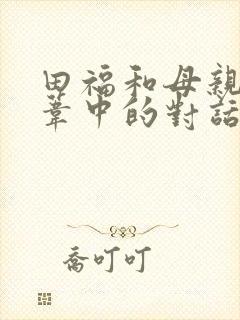 田福和母親
葦中的對話
喬叮叮